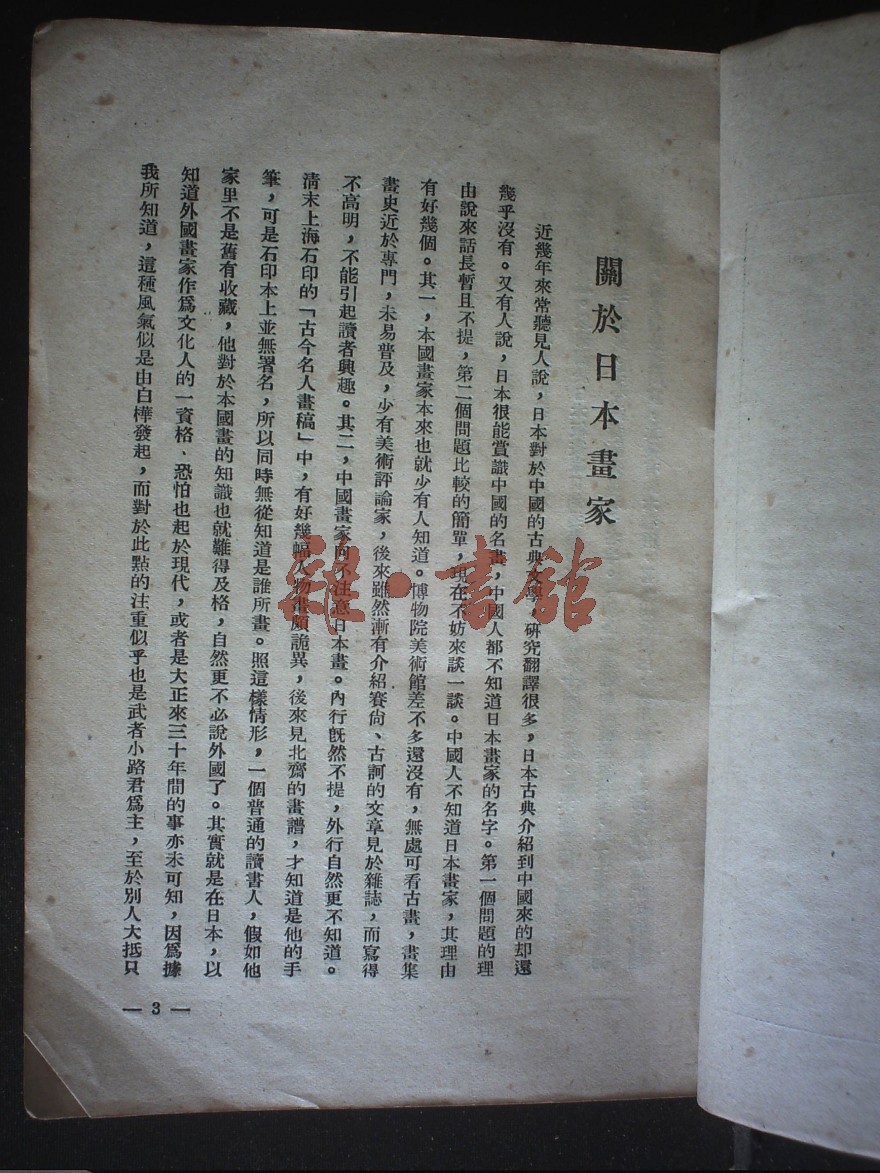 關於日本畫家
近幾年來常聽見人說，日本對於中國的古典文學，研究翻譯很多，日本古典介紹到中國來的却還
幾乎沒有。又有人說，日本很能賞識中國的名畫，中國人都不知道日本畫家的名字。第一個問題的理
由說來話長暫且不提，第二個問題比較的簡單，現在不妨來談一談。中國人不知道日本畫家，其理由
有好幾個。其一，本國畫家本來也就少有人知道。博物院美術館差不多還沒有，無處可看古畫，畫集
畫史近於專門，未易普及，少有美術評論家，後來雖然漸有介紹賽尙、古訶的文章見於雜誌，而寫得
不高明，不能引起讀者興趣。其二，中國畫家向不注意日本畫。內行旣然不提，外行自然更不知道。
淸末上海石印的「古今名人畫稿」中，有好幾幅人物畫頗詭異，後來見北齋的畫譜，才知道是他的手
筆，可是石印本上並無署名，所以同時無從知道是誰所畫。照這樣情形，一個普通的讀書人，假如他
家里不是舊有收藏，他對於本國畫的知識也就難得及格，自然更不必說外國了。其實就是在日本，以
知道外國畫家作爲文化人的一資格、恐怕也起於現代，或者是大正來三十年間的事亦未可知，因爲據
我所知道，這種風氣似是由白樺發起，而對於此點的注重似乎也是武者小路君爲主，至於別人大抵只
— 3 —
雜·書館